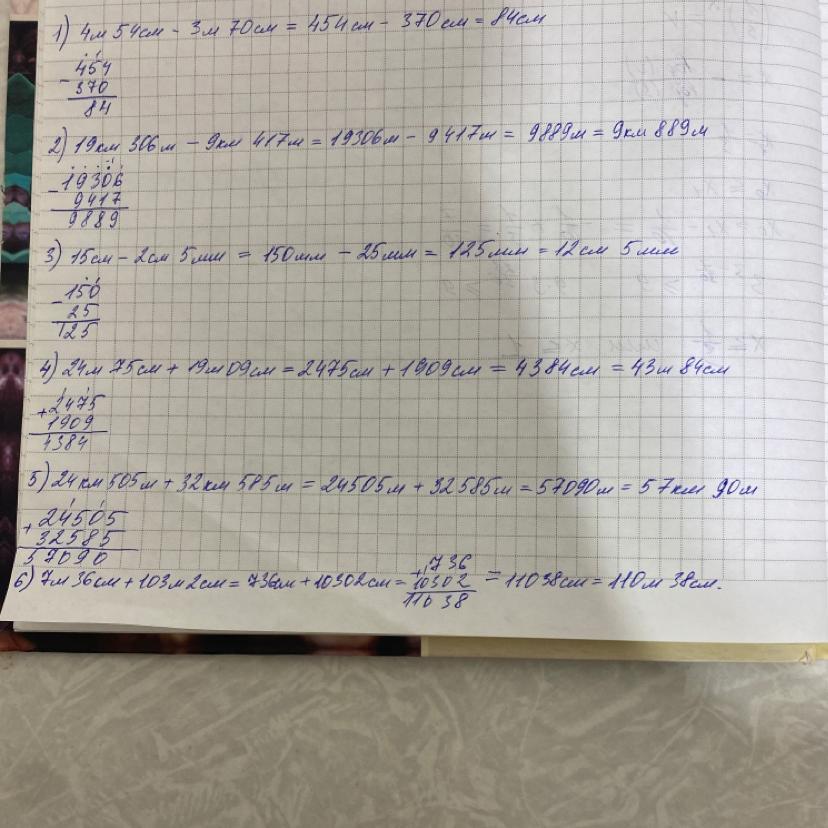 1) 4м 54см - 3м 70см = 454см - 370см = 84см
- 454
370
84
2) 19км 306м - 9км 417м = 19306м - 9417м = 9889м = 9км 889м
- 19306
9417
9889
3) 15см - 2см 5мм = 150мм - 25мм = 125мм = 12см 5мм
- 150
25
125
4) 24м 75см + 19м 09см = 2475см + 1909см = 4384см = 43м 84см
+ 2475
1909
4384
5) 24км 505м + 32км 585м = 24505м + 32585м = 57090м = 57км 90м
+ 24505
32585
57090
6) 7м 36см + 103м 2см = 736см + 10302см = + 736 10302 11038 = 11038см = 110м 38см.